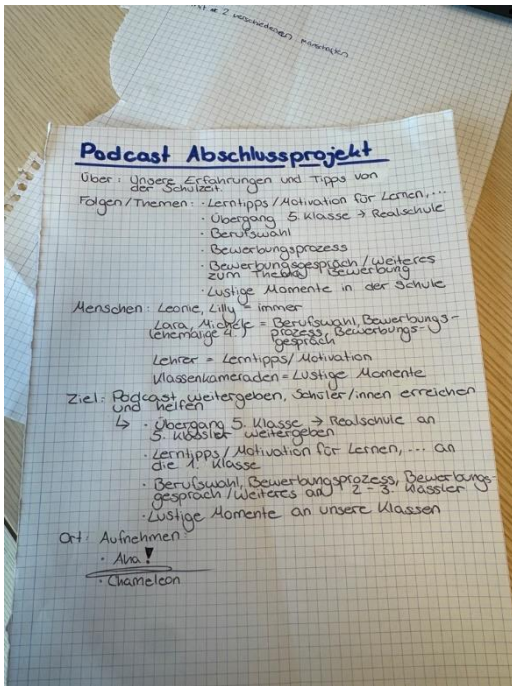 2 verschiedenen
Podcast Abschlussprojekt
Über: Unsere Erfahrungen und Tipps von
der Schulzeit.
Folgen/Themen: · Lerntipps/Motivation für Lernen,...
· Übergang 5. Klasse → Realschule
· Berufswahl
· Bewerbungsprozess
· Bewerbungsgespräch/Weiteres
zum Thema Bewerbung
· Lustige Momente in der Schule
Menschen: Leonie, Lilly = immer
Lara, Michéle = Berufswahl, Bewerbungs-
(ehemalige 4.) prozess, Bewerbungs-
gespräch
Lehrer = Lerntipps/Motivation
Klassenkameraden = Lustige Momente
Ziel: Podcast weitergeben, Schüler/innen erreichen
und helfen
↳ · Übergang 5. Klasse → Realschule an
5. Klässler weitergeben
· Lerntipps/Motivation für Lernen,... an
die 1. Klasse
· Berufswahl, Bewerbungsprozess, Bewerbungs-
gespräch/Weiteres an 2-3. Klässler
· Lustige Momente an unsere Klassen
Ort: Aufnehmen:
· Aha!
· Chameleon